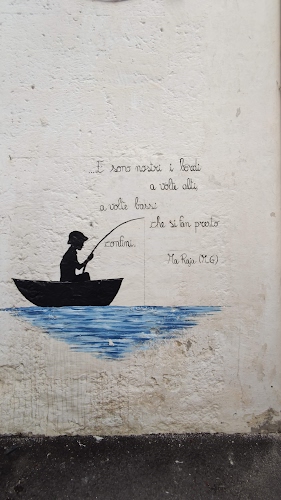 ...E sono nostri i bordi
a volte alti,
a volte bassi
che si fan presto
confini.
Ma Raja (M.G)